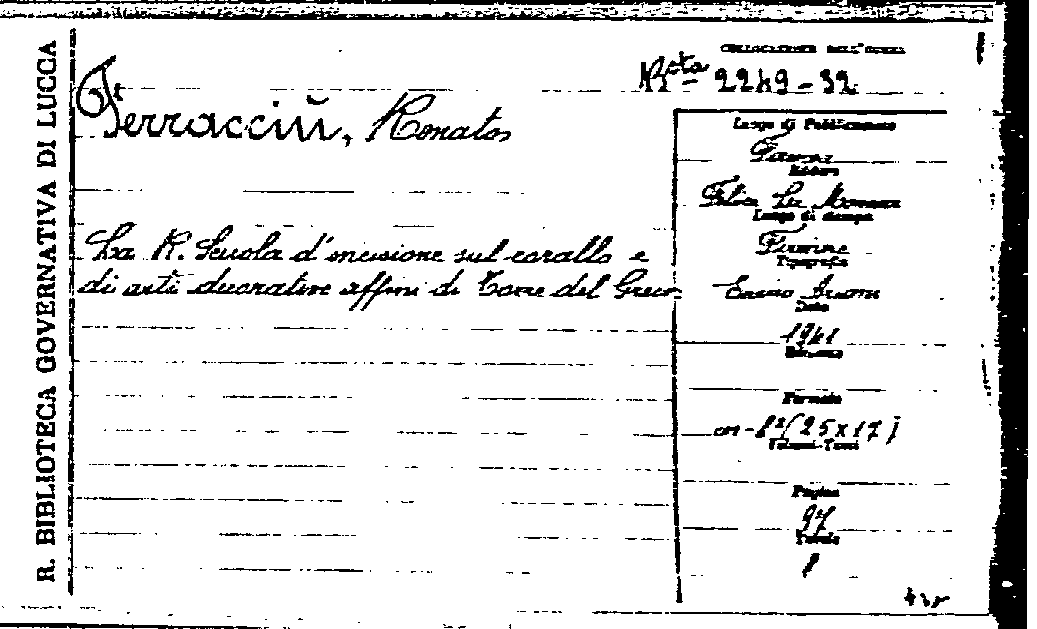 R. BIBLIOTECA GOVERNATIVA DI LUCCA
COLLOCAZIONE DELL'OPERA
Bta 2249-32
Terracciù, Renato
La R. Scuola d'incisione sul corallo e
di arti decorative affini di Torre del Greco
Luogo di Pubblicazione
Firenze
Editore
Felice Le Monnier
Luogo di stampa
Firenze
Tipografia
Enrico Ariani
Data
1941
Edizione
Formato
8° (25x17)
Volumi-Tomi
Pagine
97
Tavole